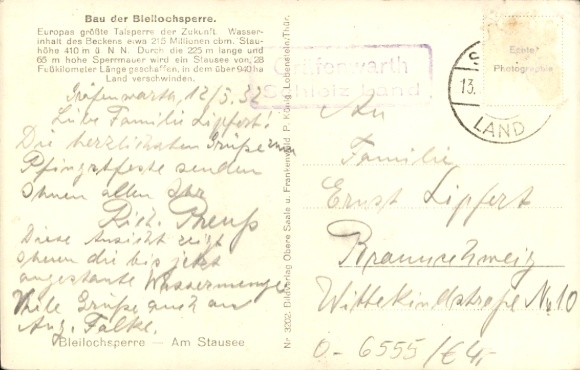 Bau der Bleilochsperre.
Europas größte Talsperre der Zukunft. Wasser-
inhalt des Beckens etwa 215 Millionen cbm. Stau-
höhe 410 m ü N N. Durch die 225 m lange und
65 m hohe Sperrmauer wird ein Stausee von 28
Flußkilometer Länge geschaffen, in dem über 940 ha
Land verschwinden.
Gräfenwarth, 12/5.32
Liebe Familie Lipfert!
Die herzlichsten Grüße zum
Pfingstfeste senden
Ihnen allen Ihr
Rich. Preuß
Diese Ansicht zeigt
Ihnen die bis jetzt
angestaute Wassermenge
Viele Grüße auch an
Aug. Falke.
Bleilochsperre — Am Stausee
Nr 3202. Bildverlag Obere Saale u. Frankenwald P. König, Lobenstein/Thür.
Gräfenwarth
Schleiz Land
Echte
Photographie
13.
LAND
An
Familie
Ernst Lipfert
Braunschweig
Wittekindstraße No 10
0-6555/€4,-